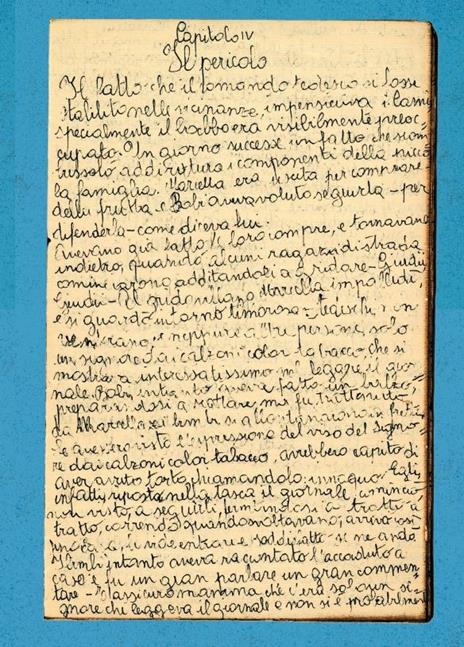 Capitolo IV
Il pericolo
Il fatto che il comando tedesco si fosse
stabilito nelle vicinanze, impensieriva i
specialmente il babbo era visibilmente preoc-
cupato. Un giorno successe un fatto che
addirittura i componenti della picco
la famiglia. Marcella era uscita per comprare
della frutta e Bobi aveva voluto seguirla - per
difenderla - come diceva lui.
Avevano già fatto le loro compre, e tornavano
indietro, quando alcuni ragazzi di strada
cominciarono additandoli a gridare - Giudii,
Giudii - Al grido villano Marcella impallidì,
e si guardò intorno timorosa - Tedeschi, non
ve n'erano, e neppure altre persone, solo
un signore dai calzoni color tabacco, che si
mostrava interessatissimo nel leggere il gior
nale. Bobi intanto aveva fatto un balzo
preparandosi a scattare, ma fu trattenuto
da Marcella e i bimbi si allontanarono in fretta
Se avessero visto l'espressione del viso del signo-
re dai calzoni color tabacco, avrebbero capito di
aver avuto torto, chiamandolo: innocuo. Egli,
infatti, riposto nella tasca il giornale, cominciò
non visto, a seguirli, fermandosi a tratti a
tratto, correndo quando svoltavano, arrivò così
li vide entrare e soddisfatto se ne andò
I bimbi intanto aveva raccontato l'accaduto a
casa e fu un gran parlare un gran commen-
tare - assicuro mamma che c'era solo un si-
gnore che leggeva il giornale e non si è probabilmente